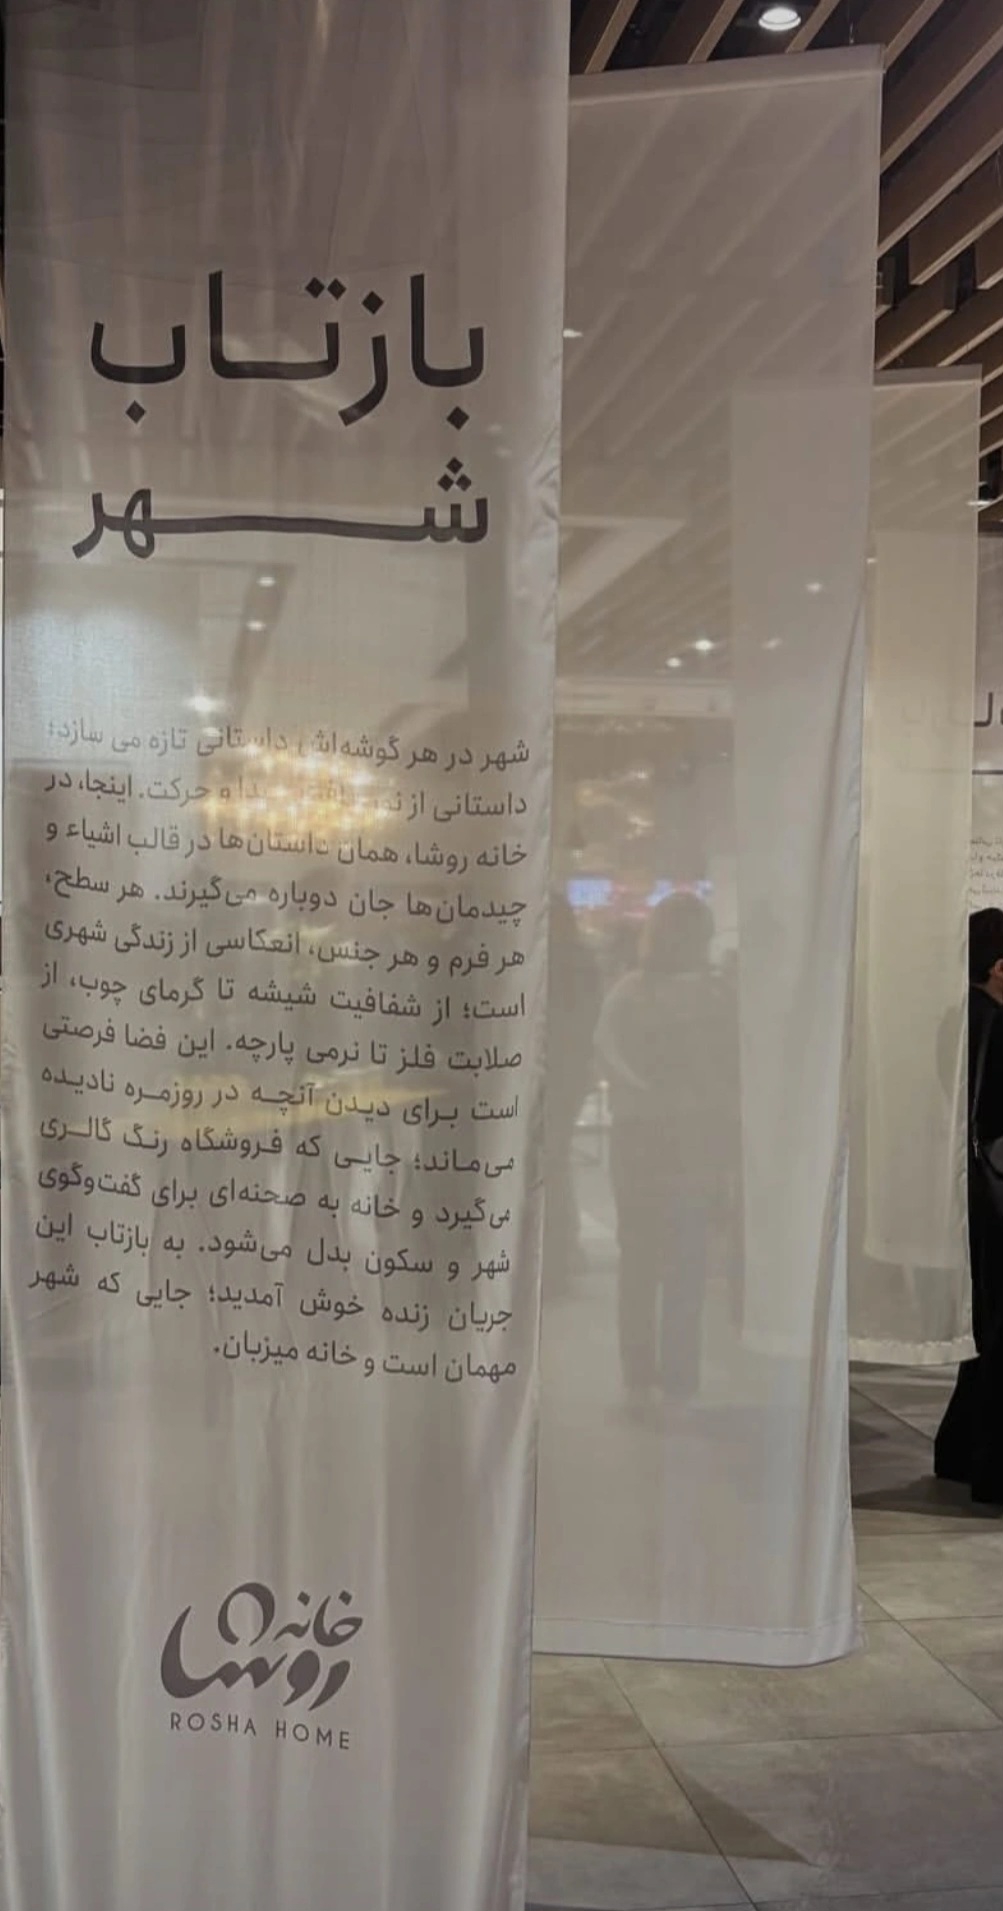 بازتاب
شهر
شهر در هر گوشه‌اش داستانی تازه می سازد؛
داستانی از نور، بافت، صدا و حرکت. اینجا، در
خانه روشا، همان داستان‌ها در قالب اشیاء و
چیدمان‌ها جان دوباره می‌گیرند. هر سطح،
هر فرم و هر جنس، انعکاسی از زندگی شهری
است؛ از شفافیت شیشه تا گرمای چوب، از
صلابت فلز تا نرمی پارچه. این فضا فرصتی
است برای دیدن آنچه در روزمره نادیده
می‌ماند؛ جایی که فروشگاه رنگ گالری
می‌گیرد و خانه به صحنه‌ای برای گفت‌وگوی
شهر و سکون بدل می‌شود. به بازتاب این
جریان زنده خوش آمدید؛ جایی که شهر
مهمان است و خانه میزبان.
خانه
روشا
ROSHA HOME